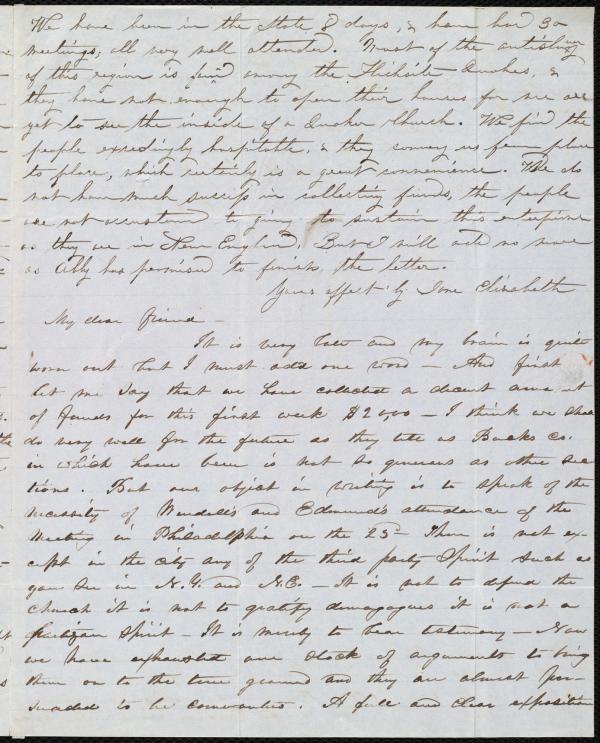 We have been in the State 8 days, & have had 30
meetings, all very well attended. Most of the antislavery
of this region is found among the Hicksite Quakers, &
they have not enough to open their houses for we are
yet to see the inside of a Quaker Church. We find the
people exceedingly hospitable, & they convey us from place
to place, which certainly is a great convenience. We do
not have much success in collecting funds, the people
are not accustomed to giving to sustain this enterprise
as they are in New England. But I will add no more
as Abby has promised to finish the letter.
Yours affect'ly Jane Elizabeth
My dear friend —
It is very late and my brain is quite
worn out but I must add one word — And first
let me say that we have collected a decent amount
of funds for this first week $20,00 — I think we shall
do very well for the future as they tell us Bucks co.
in which have been is not so generous as other sec
tions. But our object in writing is to speak of the
necessity of Wendell's and Edmund's attendance of the
meeting in Philadelphia on the 25th There is not ex-
cept in the city any of the third party spirit such as
you see in N.Y. and N.E. — It is not to defend the
church it is not to gratify demagogues it is not a
partizan spirit — It is merely to bear testimony — Now
we have exhausted our stock of arguments to bring
them on to the true ground and they are almost per-
suaded to be comeouters. A full and clear exposition